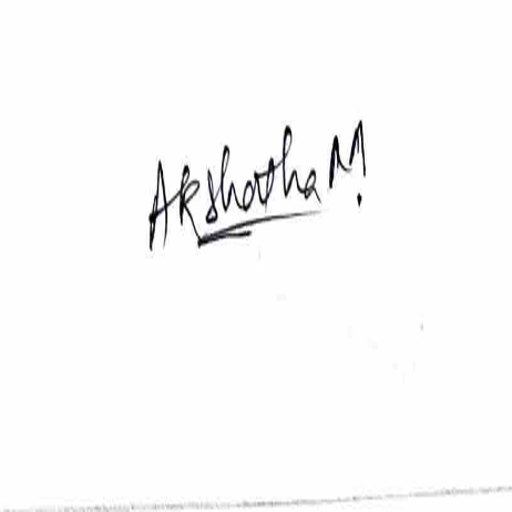 Akshatha M.